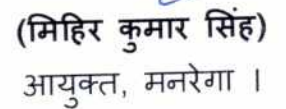 (मिहिर कुमार सिंह)
आयुक्त, मनरेगा ।